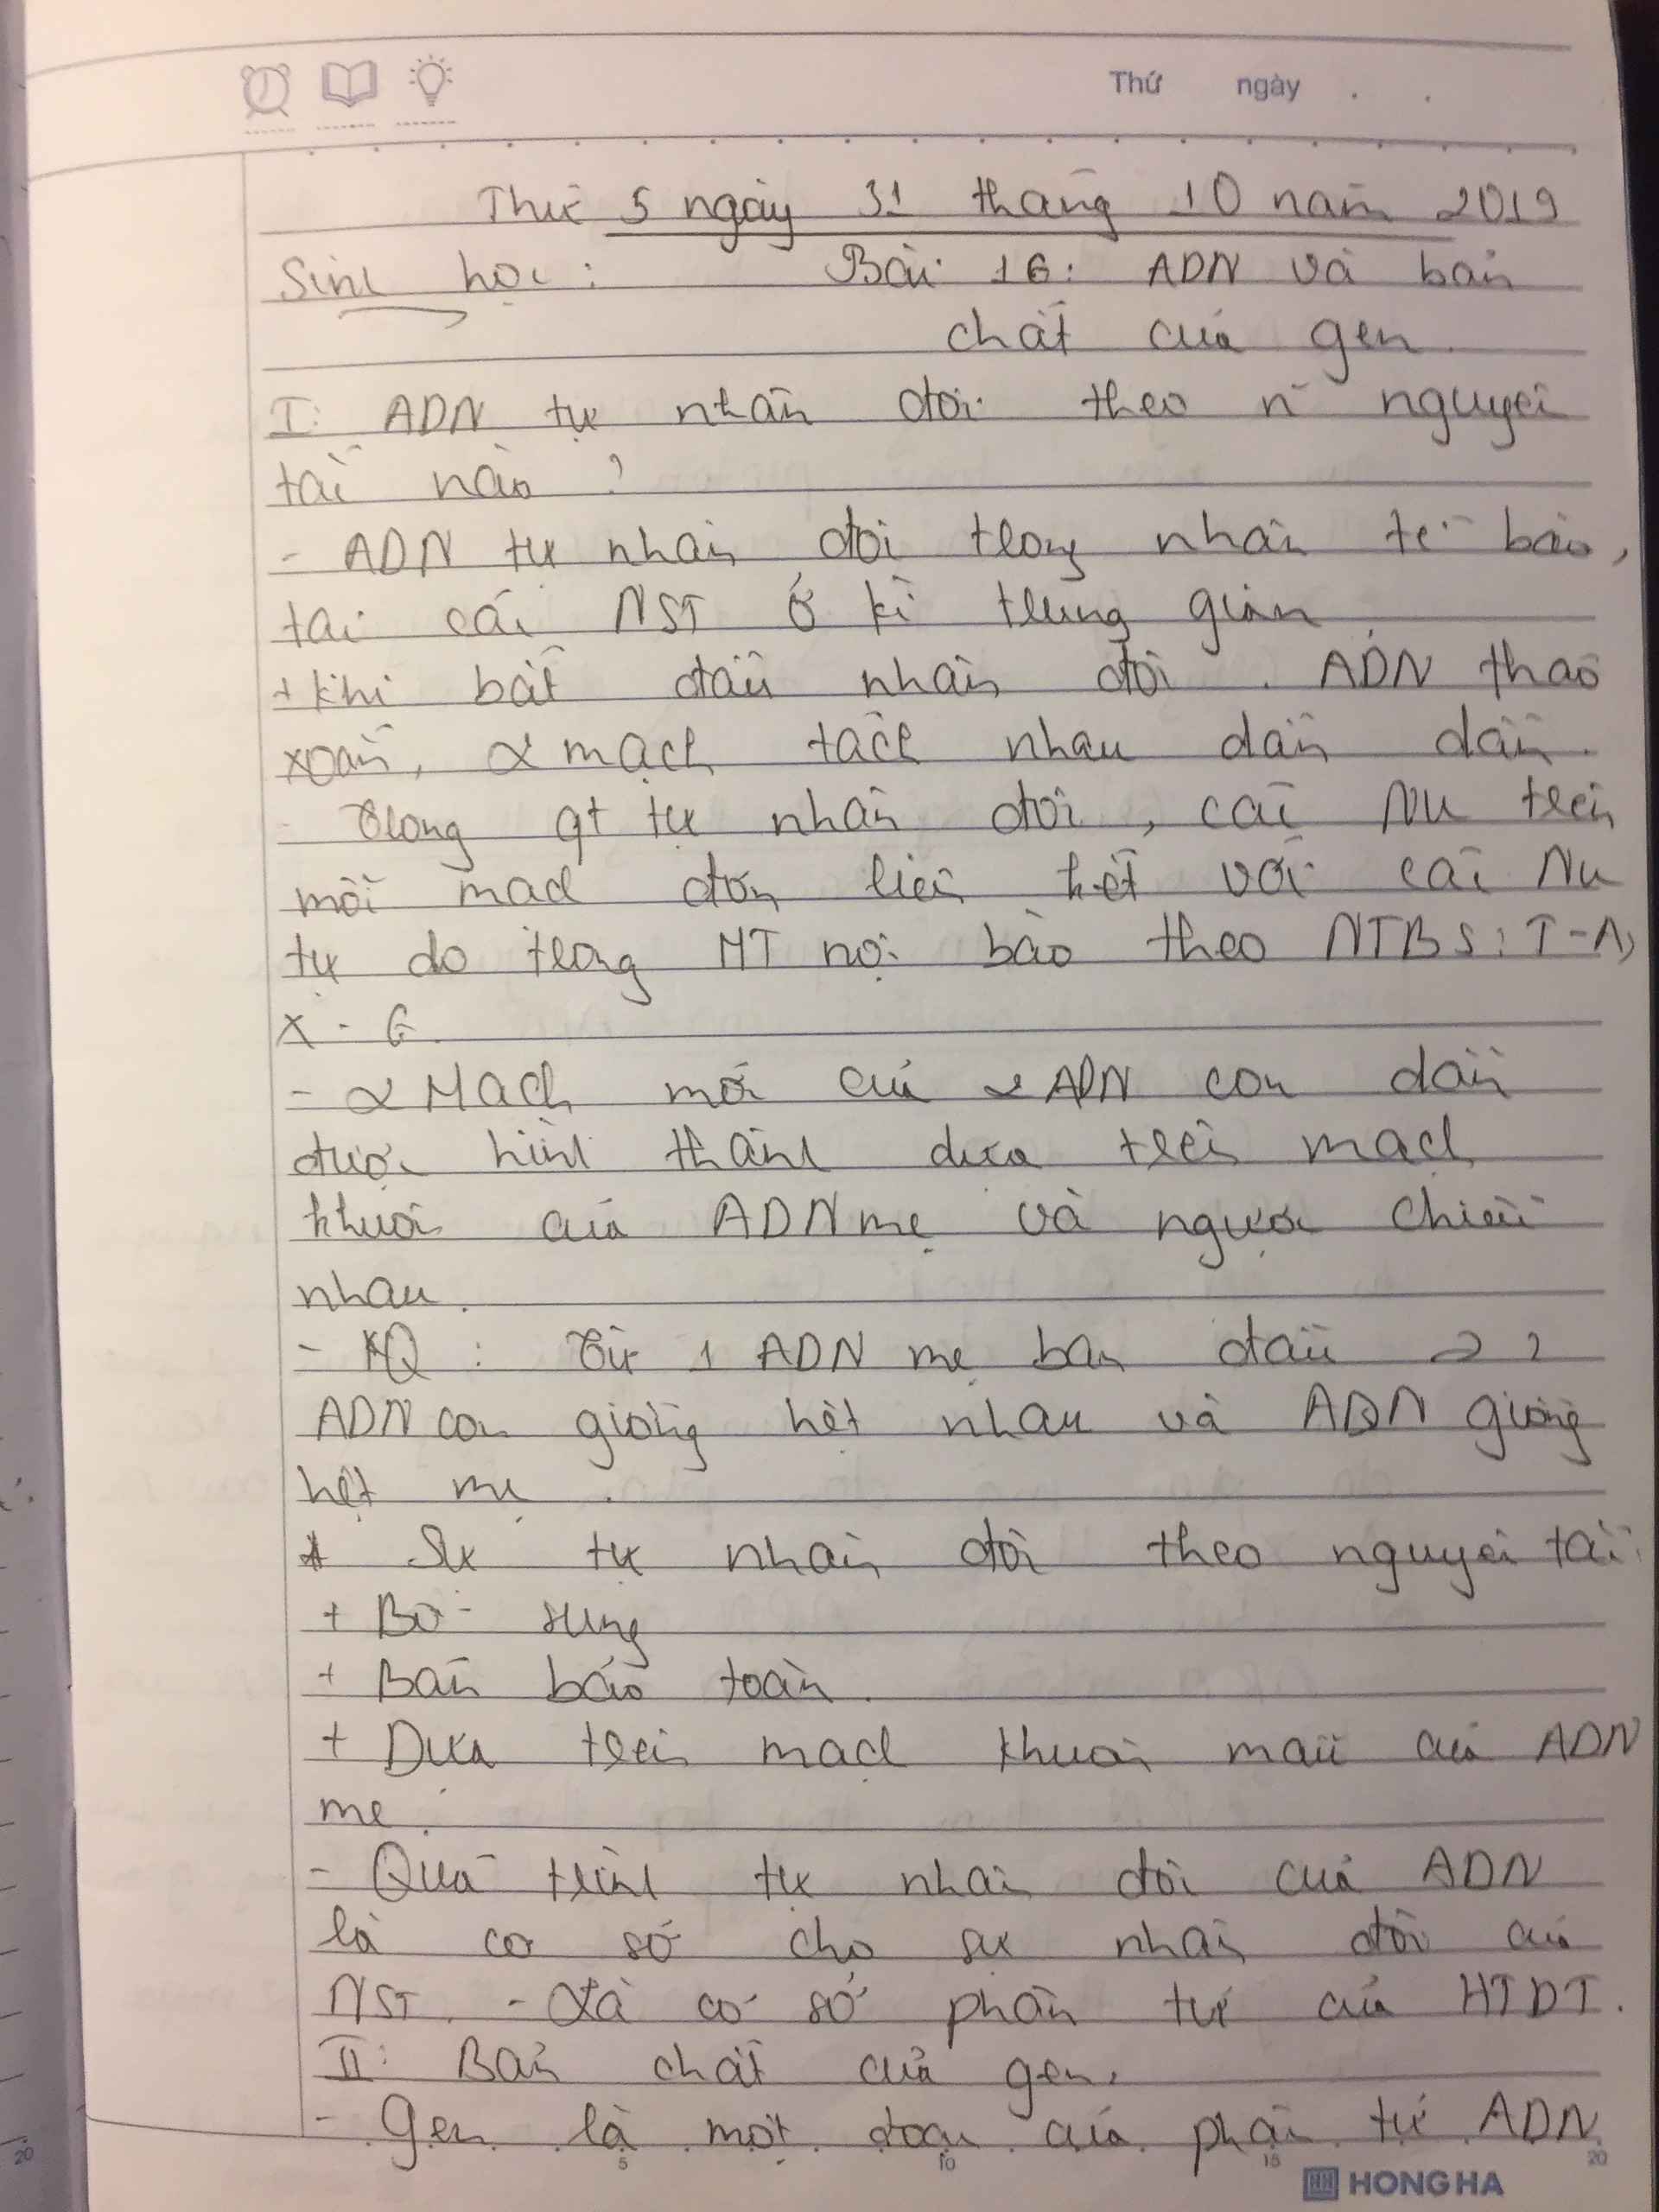 Thứ ngày . .
Thứ 5 ngày 31 tháng 10 năm 2019
Sinh học : Bài 16 : ADN và bản
chất của gen
I : ADN tự nhân đôi theo n nguyên
tắc nào ?
- ADN tự nhân đôi trong nhân tế bào,
tại các NST ở kì trung gian
+ khi bắt đầu nhân đôi . ADN tháo
xoắn, 2 mạch tách nhau dần dần.
- Trong qt tự nhân đôi , các Nu trên
mỗi mạch đơn liên kết với các Nu
tự do trong MT nội bào theo NTBS : T - A,
X - G
- 2 Mạch mới của 2 ADN con dần
được hình thành dựa trên mạch
khuôn của ADN mẹ và ngược chiều
nhau .
- KQ : Từ 1 ADN mẹ ban đầu → 2
ADN con giống hệt nhau và ADN giống
hệt mẹ .
* Sự tự nhân đôi theo nguyên tắc :
+ Bổ sung
+ Bán bảo toàn .
+ Dựa trên mạch khuôn mẫu của ADN
mẹ .
- Quá trình tự nhân đôi của ADN
là cơ sở cho sự nhân đôi của
NST . - Là cơ sở phân tử của HTDT .
II : Bản chất của gen .
- Gen là một đoạn của phân tử ADN
5 10 15 20
20
HONG HA